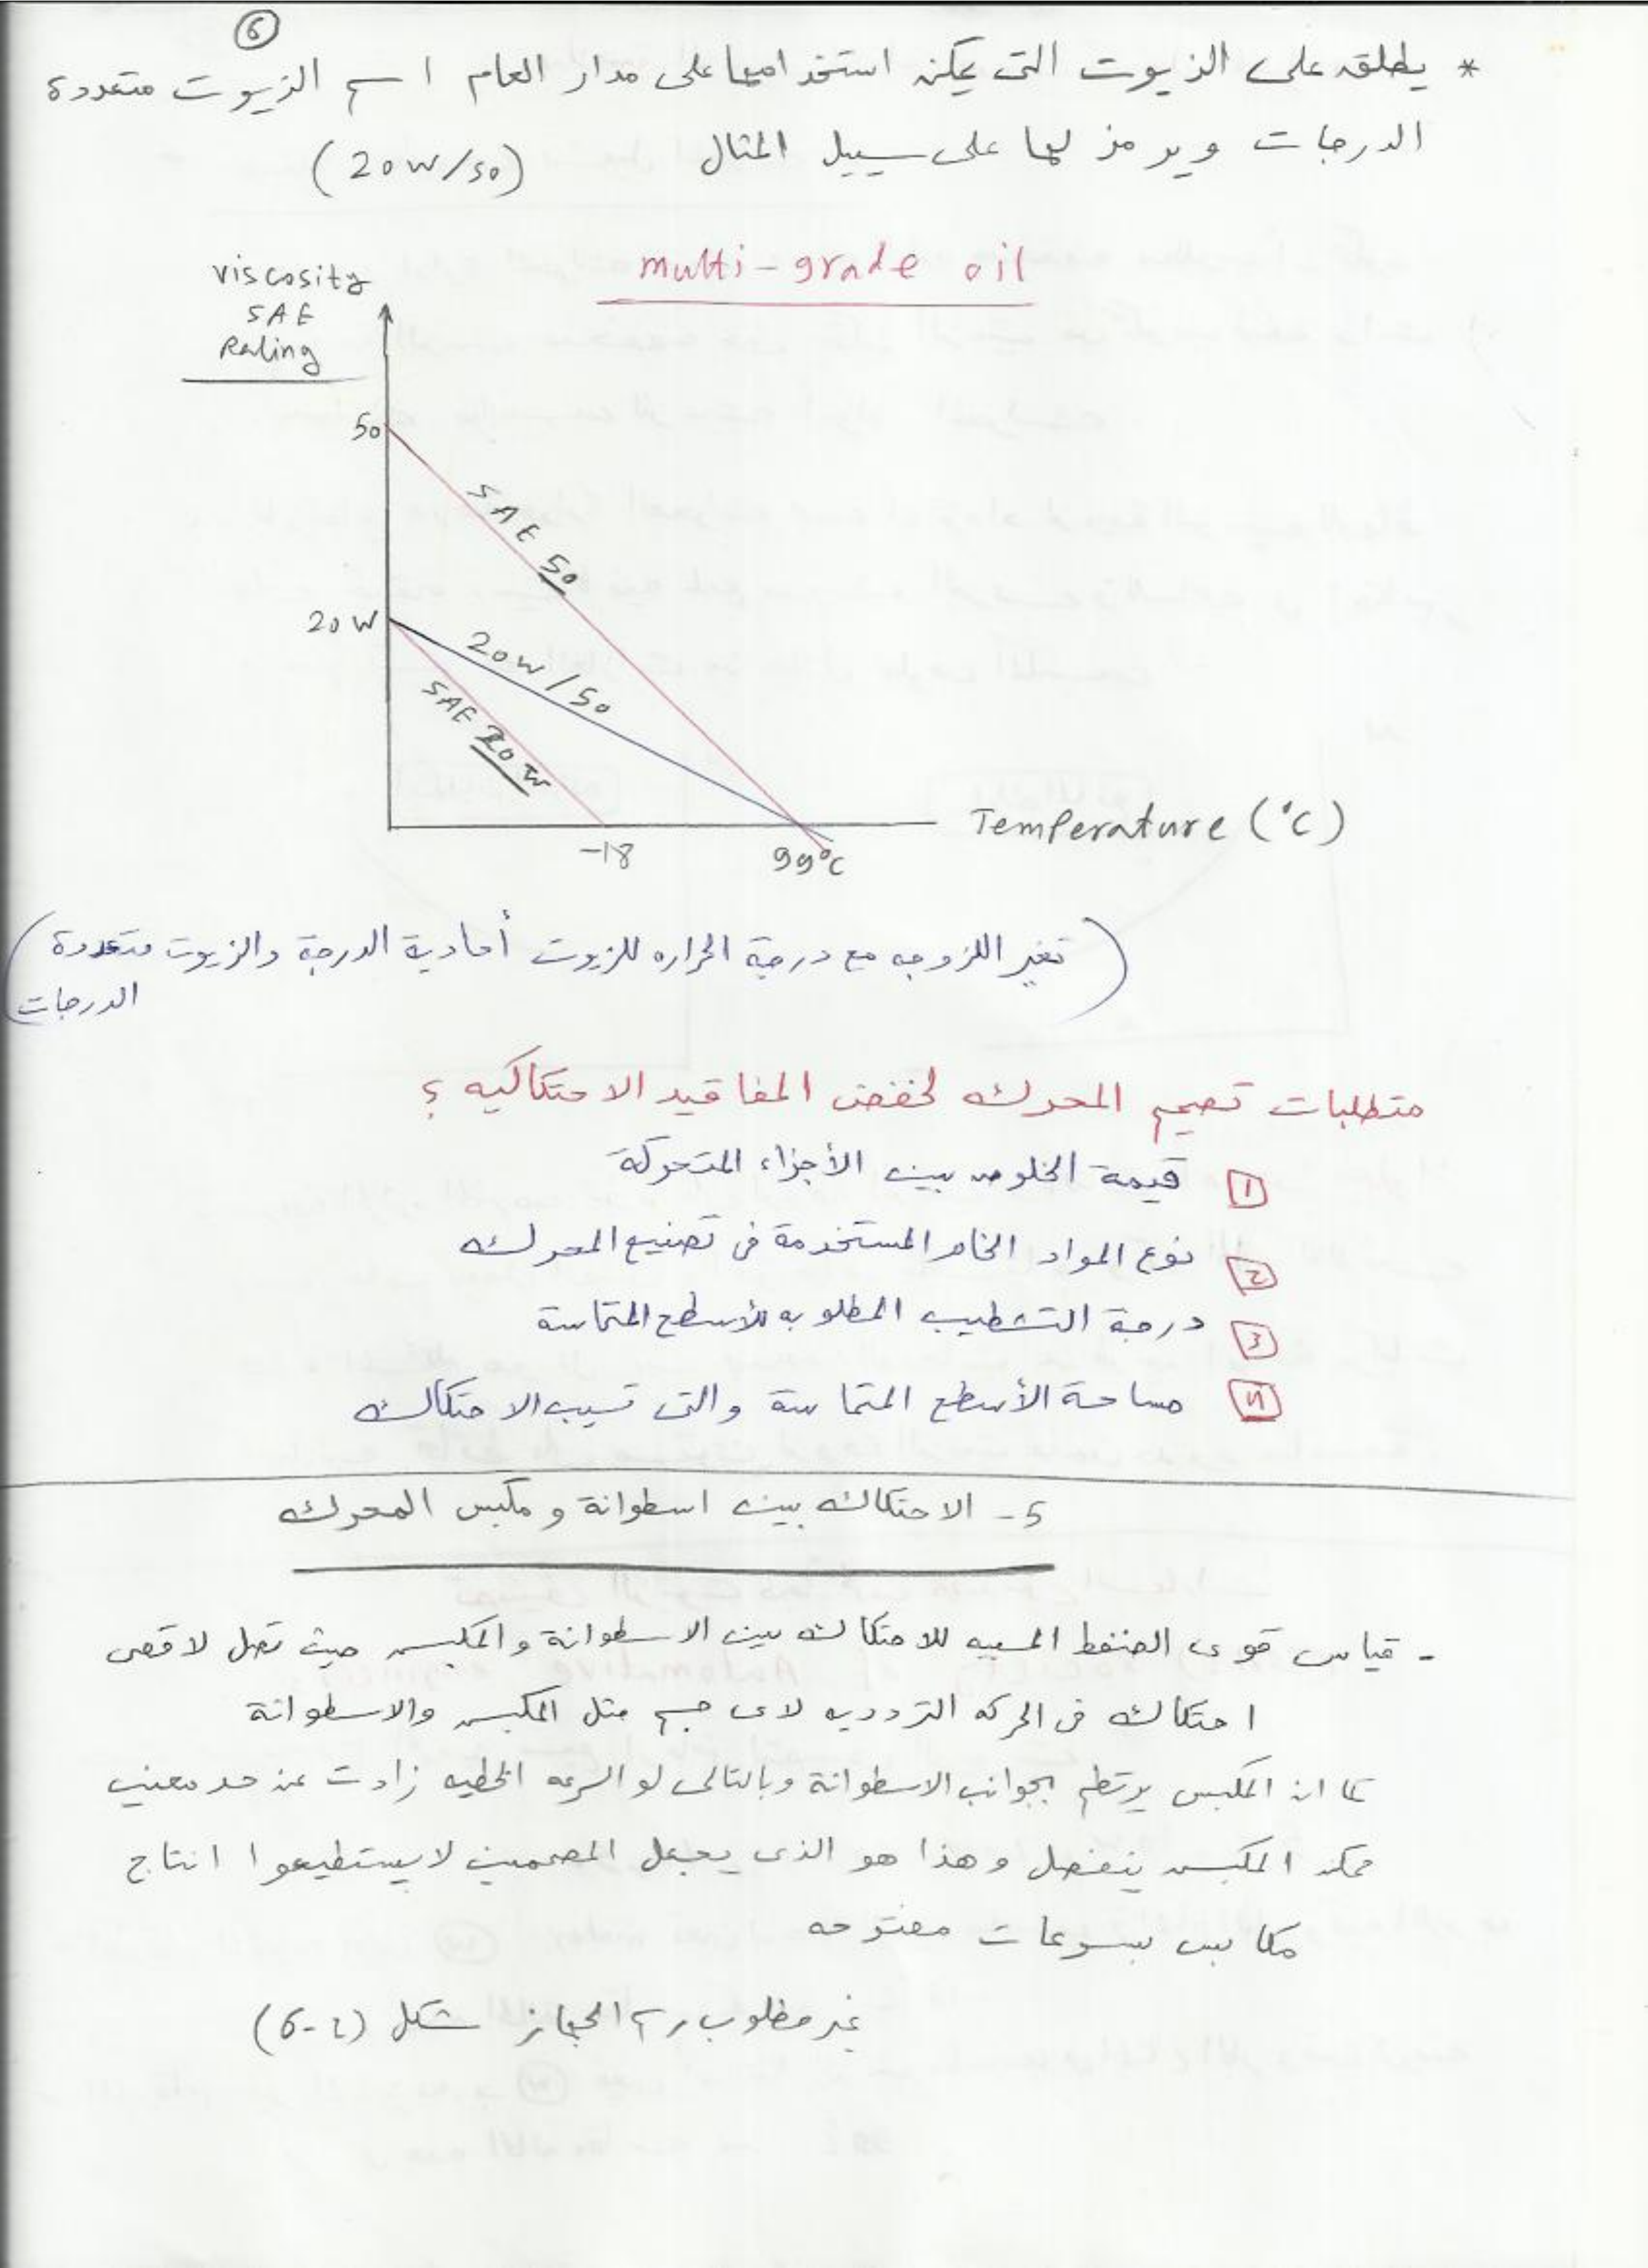 6
* يطلق على الزيوت التى يمكن استخدامها على مدار العام اسم الزيوت متعددة
الدرجات ويرمز لها على سبيل المثال (20W/50)
multi-grade oil
viscosity
SAE
Rating
50
SAE 50
20W
20W/50
SAE 20W
Temperature (°C)
-18
99°C
(تغير اللزوجه مع درجة الحراره للزيوت أحادية الدرجة والزيوت متعددة
الدرجات)
متطلبات تصميم المحرك لخفض المفاقيد الاحتكاكيه ؟
1 قيمة الخلوص بين الأجزاء المتحركة
2 نوع المواد الخام المستخدمة فى تصنيع المحرك
3 درجة التشطيب المطلوبه للأسطح المتماسة
4 مساحة الأسطح المتماسة والتى تسبب الاحتكاك
5- الاحتكاك بين اسطوانة ومكبس المحرك
- قياس قوى الضغط المسببه للاحتكاك بين الاسطوانة والمكبس حيث تصل لاقصى
احتكاك فى الحركه التردديه لاى جسم مثل المكبس والاسطوانة
كما ان المكبس يرتطم بجوانب الاسطوانة وبالتالى لو السرعه الخطيه زادت عن حد معين
ممكن المكبس ينفصل وهذا هو الذى يجعل المصممين لا يستطيعوا انتاج
مكابس بسرعات مفتوحه
غير مطلوب رسم الجهاز شكل (2-6)